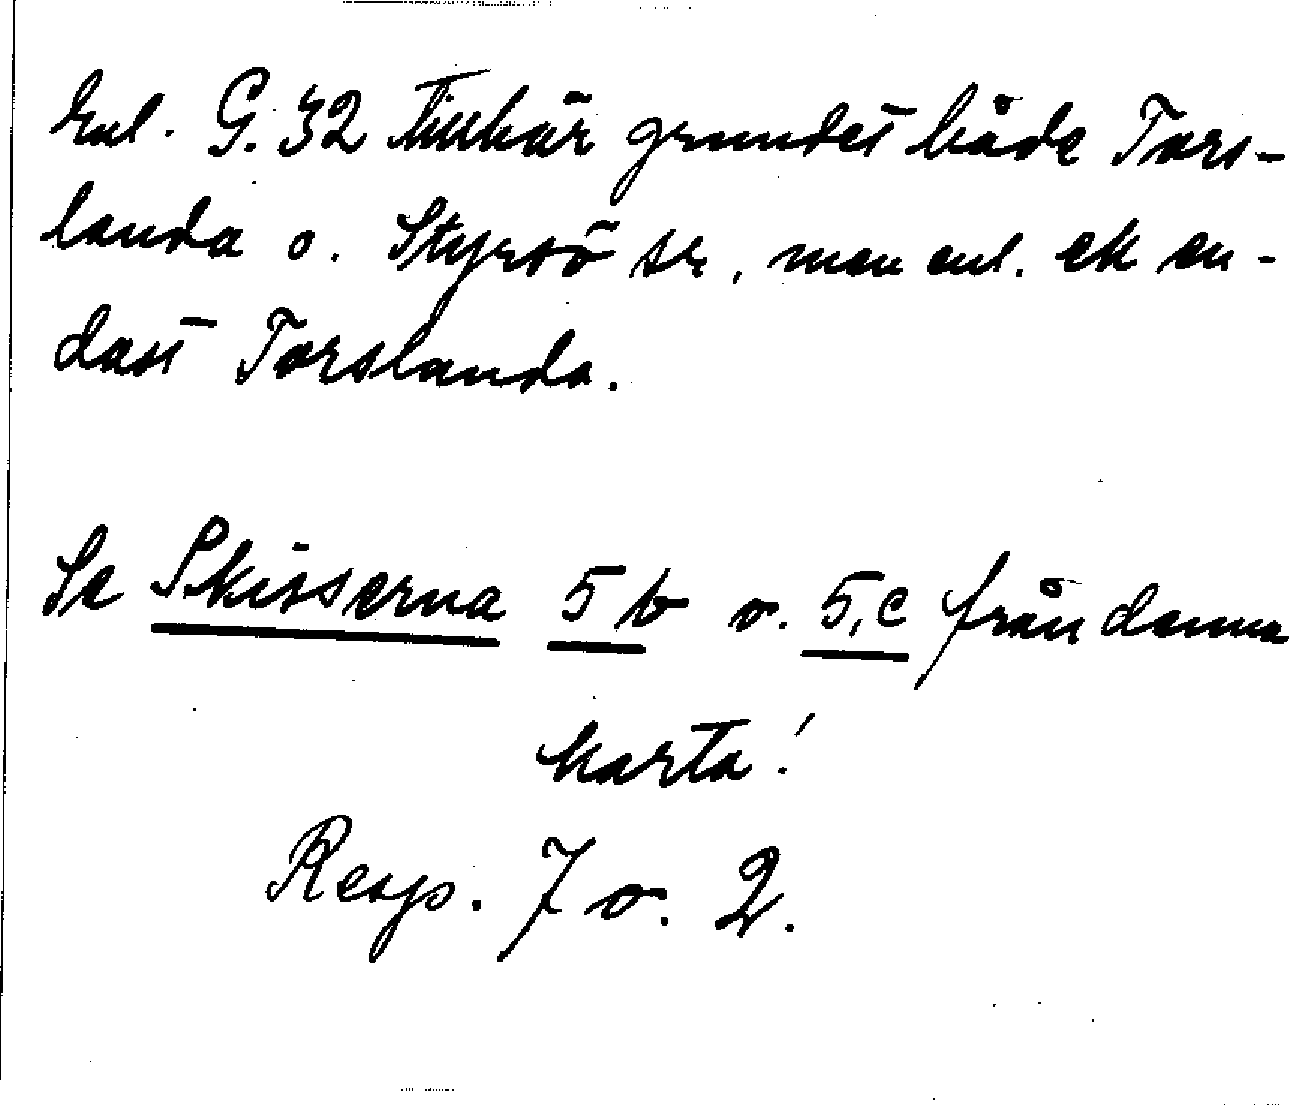 Enl. G. 32 tillhör grundet både Tors-
landa o. Styrsö sn, men enl. ek en-
dast Torslanda.
Se Skisserna 5 b o. 5,c från denna
karta!
Resp. 7 o. 2.